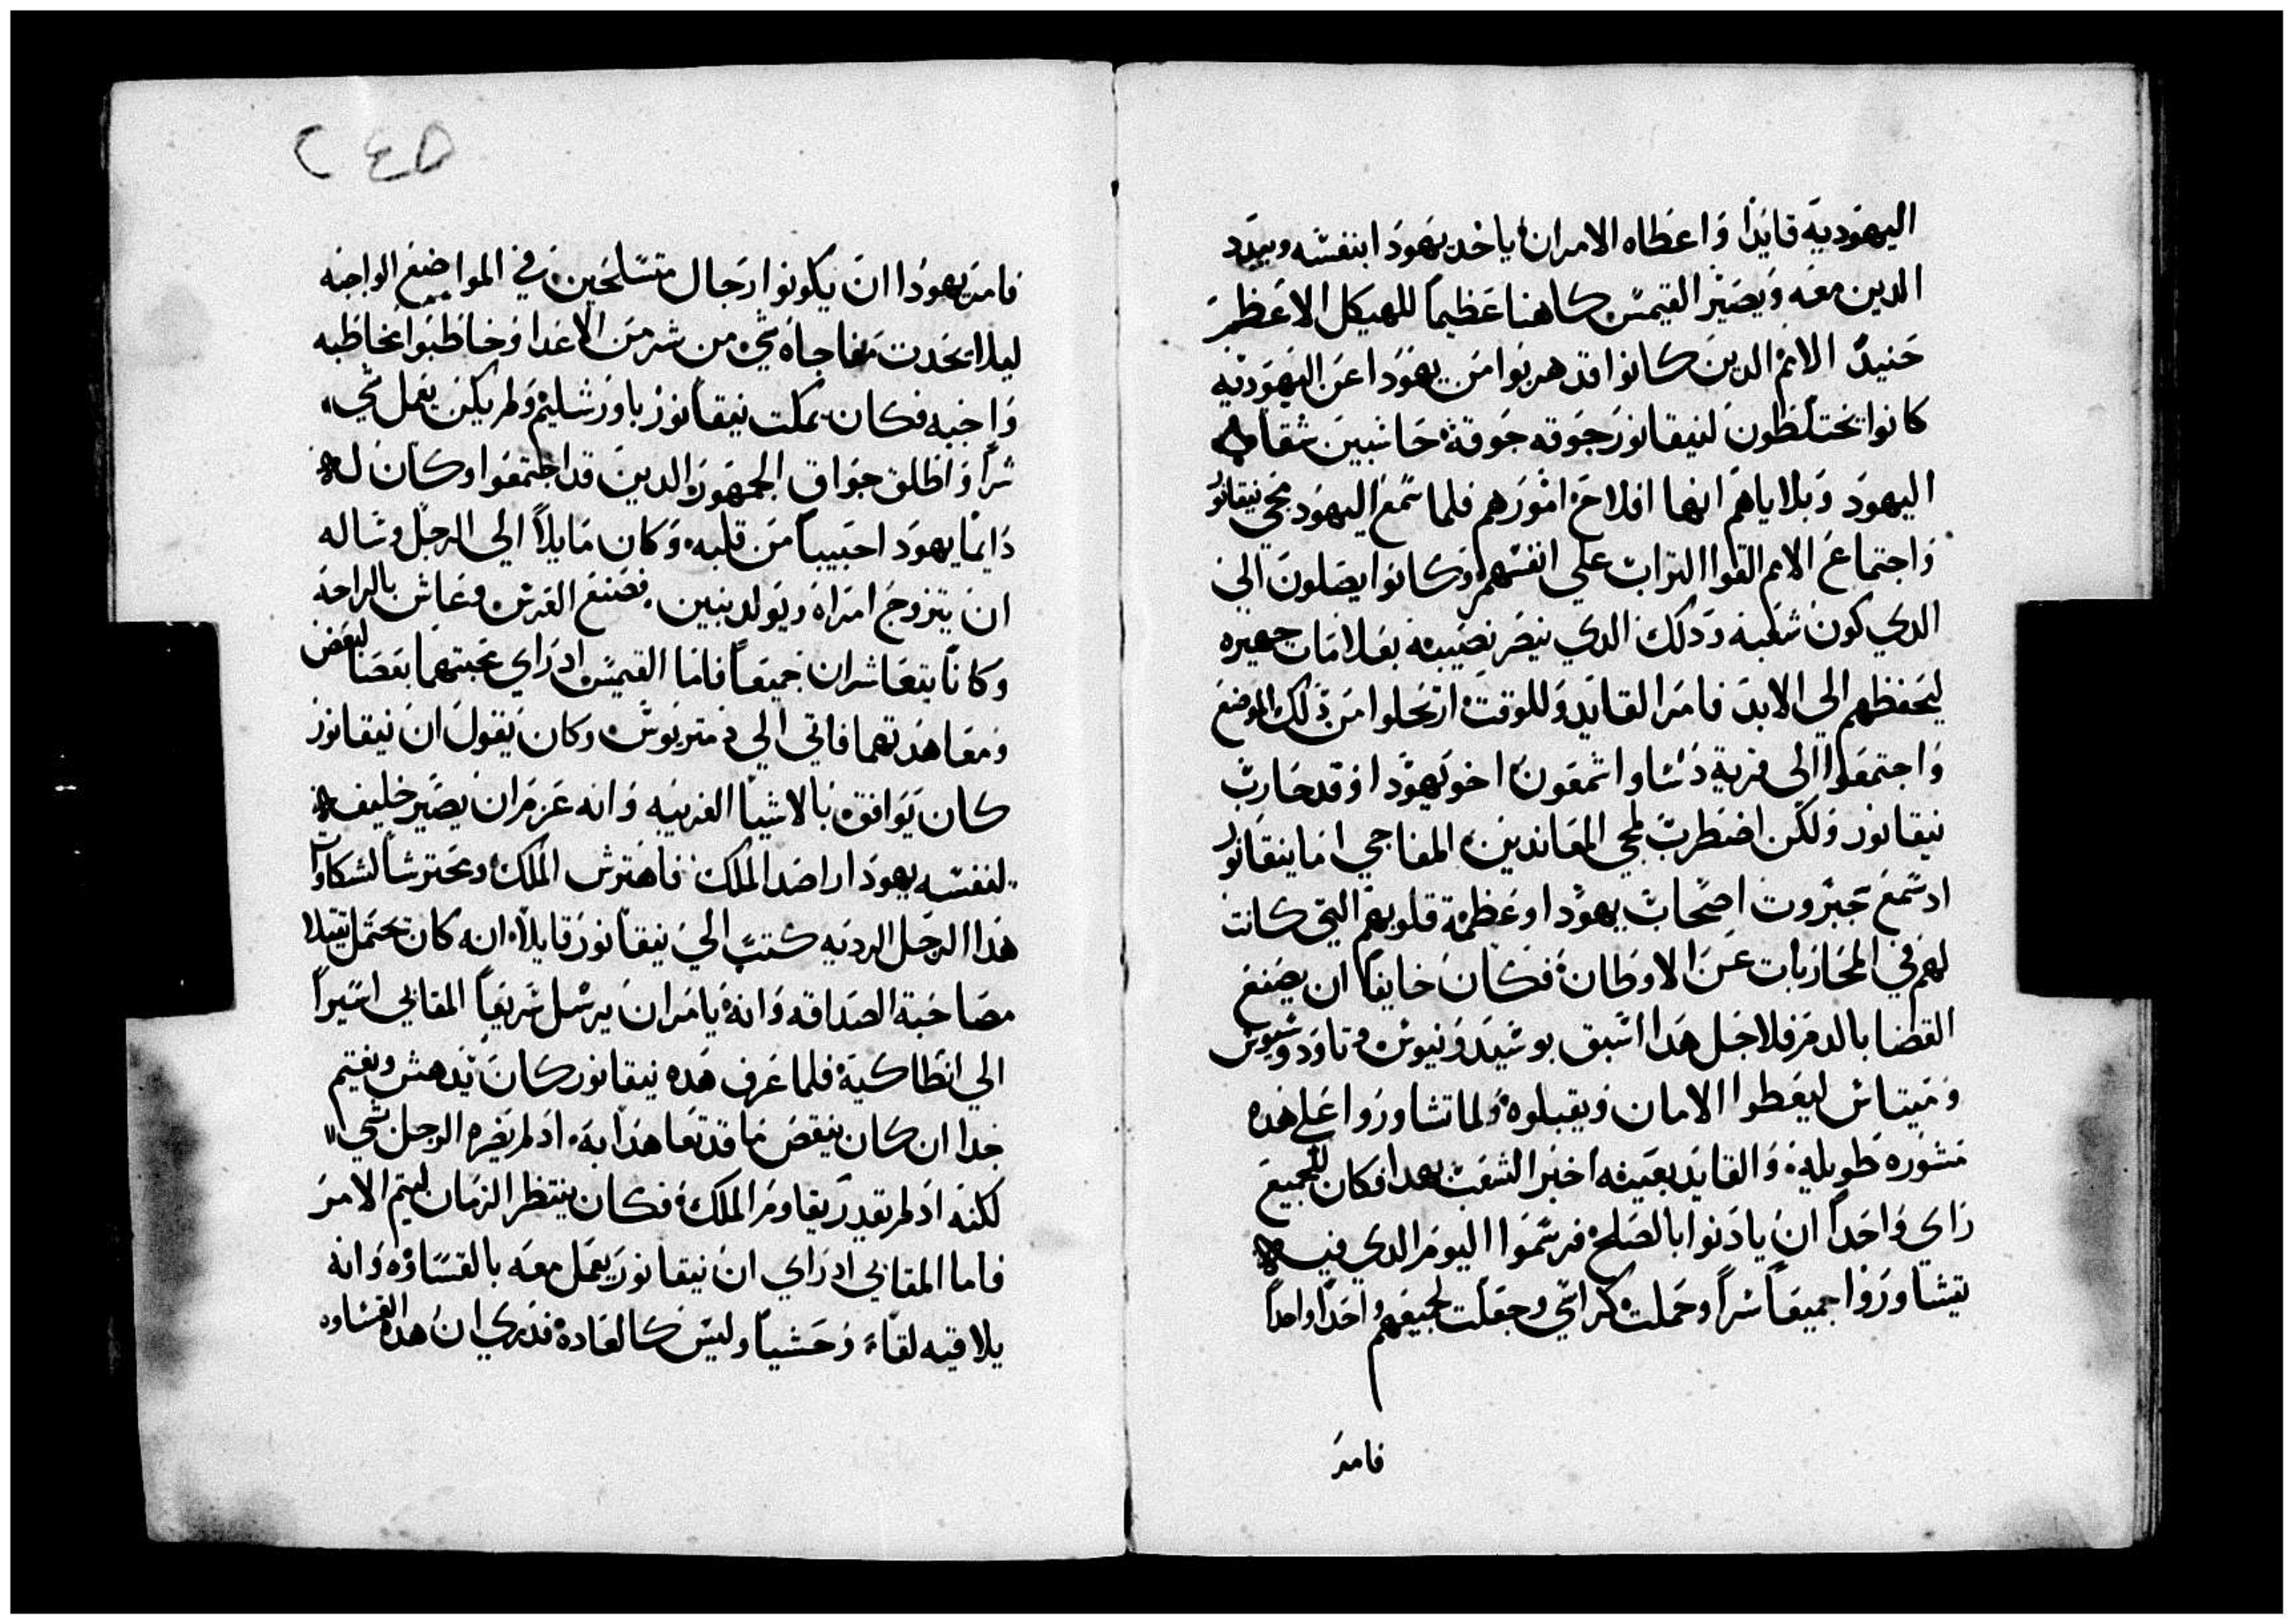 اليهوديه قايدا واعطاه الامر ان ياخد يهودا بنفسه ويبدد
الدين معه ويصير القيمس كاهنا عظيما للهيكل الاعظم
حنيد الامم الدين كانوا قد هربوا من يهودا عن اليهوديه
كانوا يختلطون لنيقانور جوقه جوقة حاسبين شقاوه
اليهود وبلاياهم انها افلاح امورهم فلما سمع اليهود مجي نيقانور
واجتماع الامم القوا التراب علي انفسهم وكانوا يصلون الي
الدي كون شعبه ودلك الدي نيصر نصيبه بعلامات جهيره
ليحفظهم الي الابد فامر القايد وللوقت ارتحلوا من دلك الموضع
واجتمعوا الي قرية دساو اشمعون اخو يهودا وقد حارب
نيقانور ولكن اضطرب لمجي المعاندين المفاجي اما ينقانور
اد سمع جبروت اصحاب يهودا وعظمة قلوبهم التي كانت
لهم في المحاربات عن الاوطان فكان خايفا ان يصنع
القضا بالدم فلاجل هدا اسبق بوسيدونيوس وتاودوسيوس
ومنتاس ليعطوا الامان ويقبلوه ولما تشاوروا علي هده
مشوره طويله والقايد بعينه اخبر الشعب بهدا فكان للجميع
راي واحدا ان يادنوا بالصلح فرسموا اليوم الدي فيه
يتشاوروا جميعا سرا وحملت كراسي وجعلت لجميعهم واحدا واحدا
فامر
٢٤٥
فامر يهودا ان يكونوا رجال متسلحين في المواضع الواجبه
ليلا تحدت مفاجاه شي من شر من الاعدا وخاطبوا مخاطبه
واجبه فكان يمكت نيقانور باورشليم ولم يكن يعمل شي
شرا واطلق جواق الجمهور الدين قد اجتمعوا وكان له
دايما يهودا حبيبا من قلبه وكان مايلا الي الرجل وساله
ان يتزوج امراه ويولد بنين فصنع العرس وعاش بالراحه
وكانا يتعاشران جميعا فاما القيمس اد راي محبتهما بعضا لبعض
ومعاهدتهما فاتي الي دمتريوس وكان يقول ان نيقانور
كان يوافق بالاشيا الغريبه وانه عزم ان يصير خليفه
لنفسه يهودا راضد الملك فاهترس الملك ومحترسا لشكاوات
هدا الرجل الرديه كتب الي نيقانور قايلا انه كان تحتمل تقيلا
مصاحبة الصداقه وانه يامر ان يرسل سريعا المقابي اسيرا
الي انطاكية فلما عرف هده نيقانور كان يدهش ويغتيم
جدا ان كان ينقض ما قد تعاهدا به اد لم يضره الرجل شي
لكنه اد لم يقدر يقاوم الملك فكان ينتظر الزمان ليتم الامر
فاما المقابي اد راي ان نيقانور يعمل معه بالقساوه وانه
يلاقيه لقاء وحشيا وليس كالعادة فدري ان هده القساوه